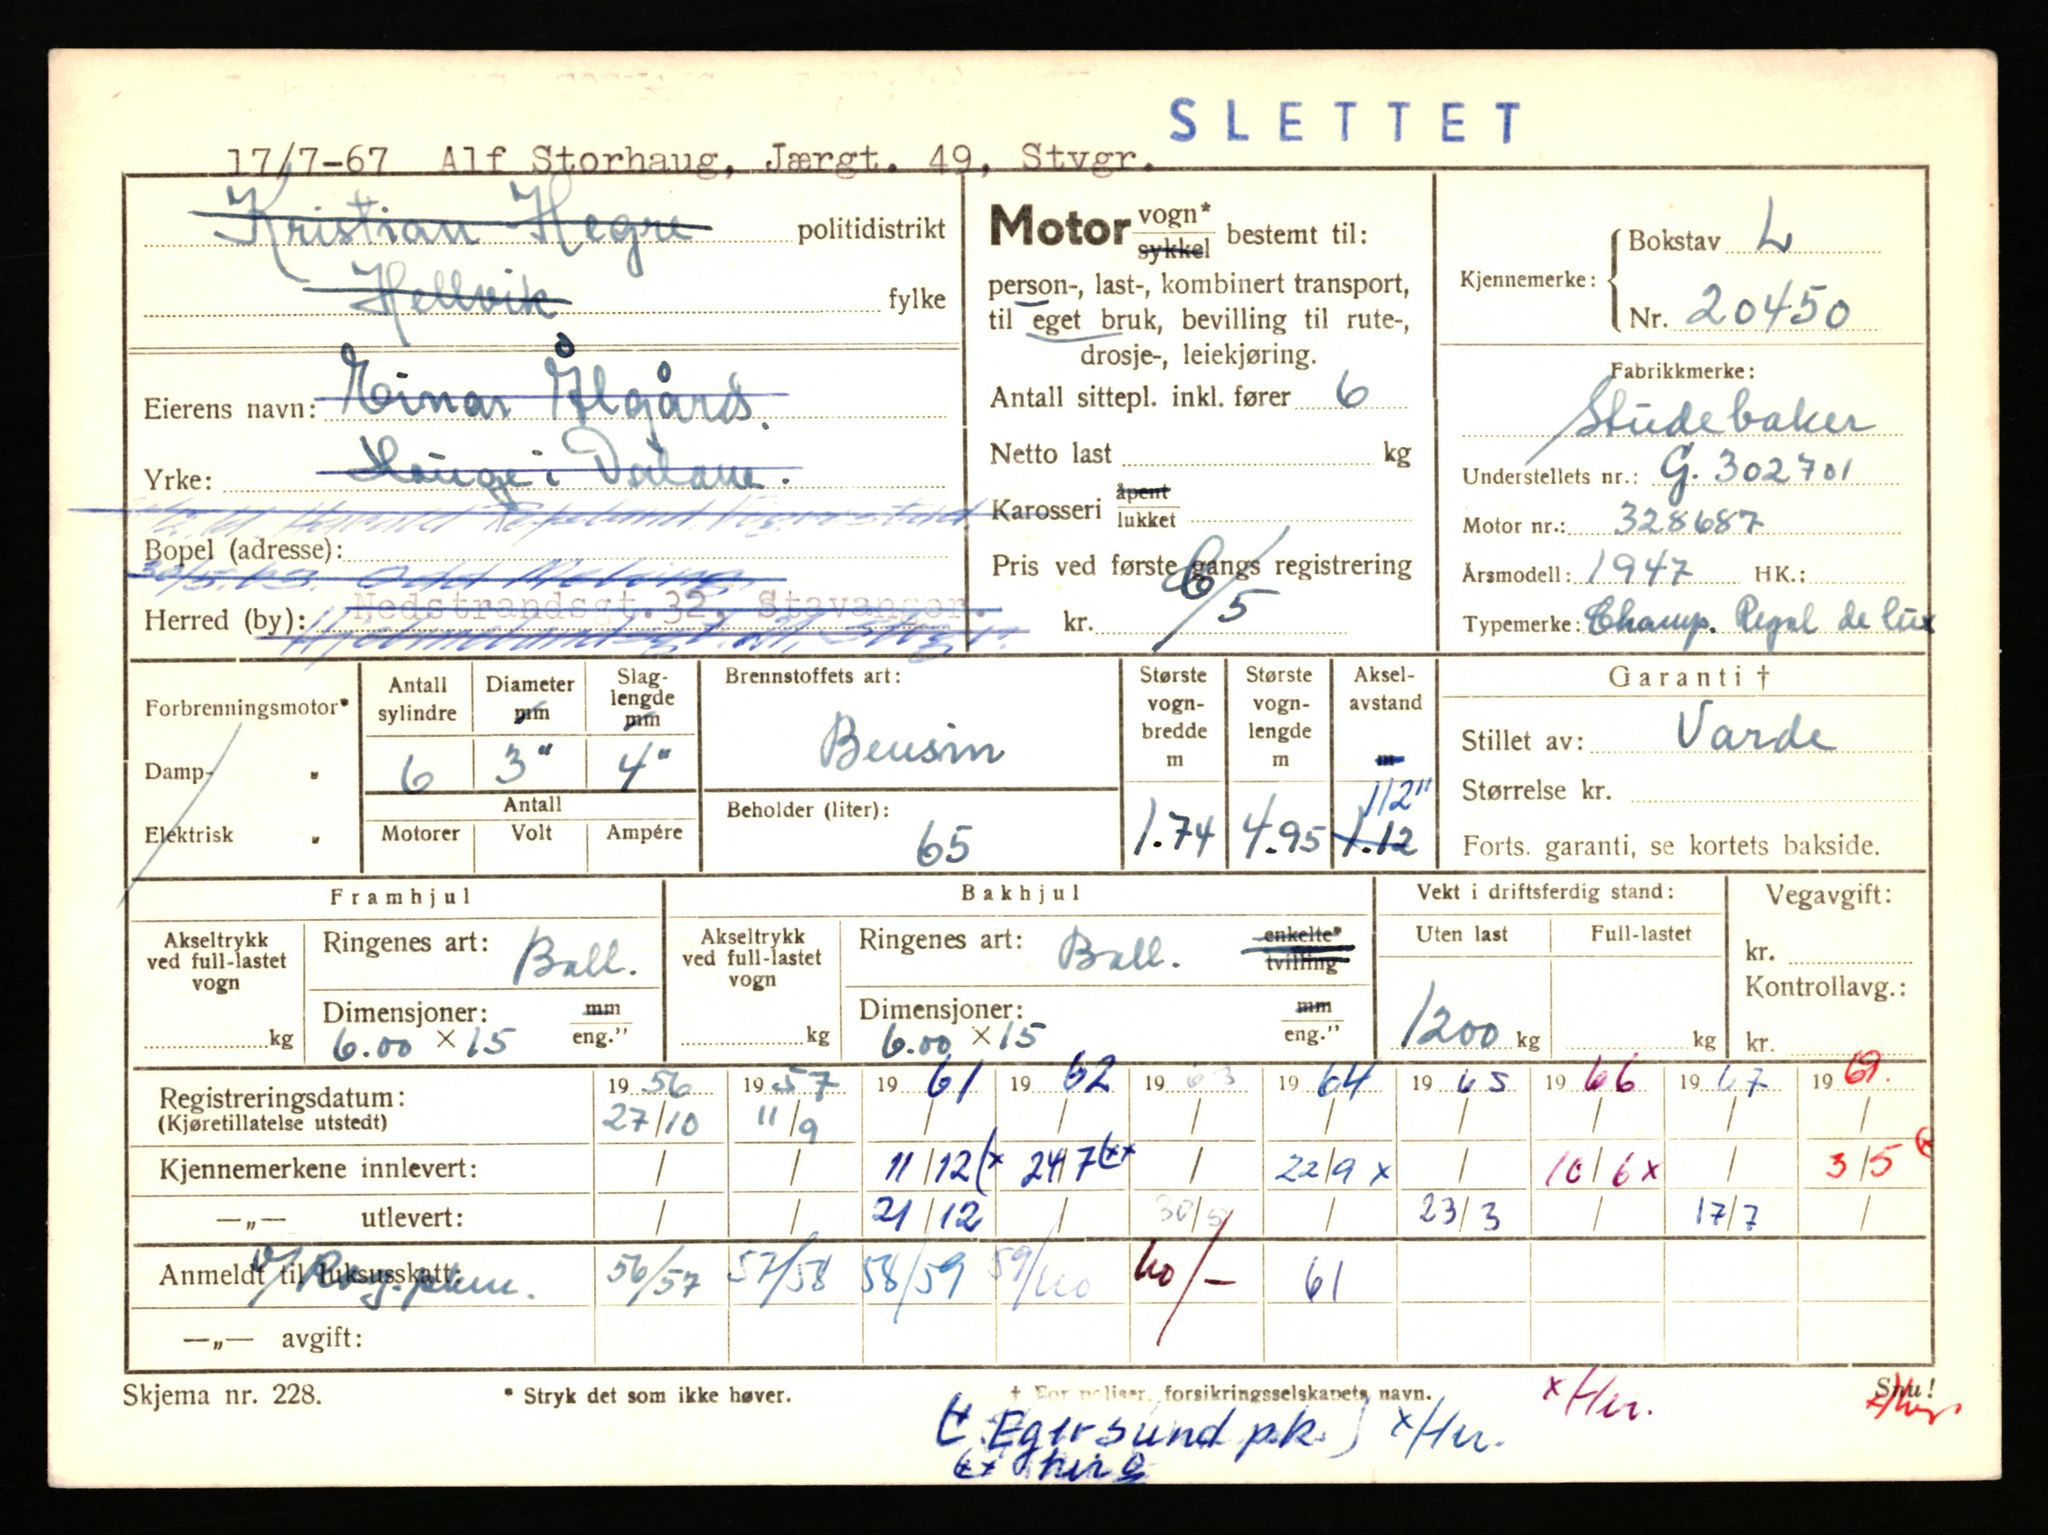 SLETTET
17/7-67 Alf Storhaug, Jærgt. 49, Stvgr.
Kristian Hegre politidistrikt
Hellvik fylke
Eierens navn: Einar Ålgård.
Yrke: Hauge i Dalane.
Harald Vigrestad
Bopel (adresse):
30/5.63. Odd Meling
Herred (by): Nedstrandsgt.32. Stavanger.
Motor vogn* sykkel bestemt til:
person-, last-, kombinert transport,
til eget bruk, bevilling til rute-,
drosje-, leiekjøring.
Antall sittepl. inkl. fører 6
Netto last kg
Karosseri åpent lukket
Pris ved første gangs registrering
kr. 6/5
Kjennemerke: Bokstav L
Nr. 20450
Fabrikkmerke:
Studebaker
Understellets nr.: G. 302701
Motor nr.: 328687
Årsmodell: 1947 HK.:
Typemerke: Champ. Regal de lux
Forbrenningsmotor*
Damp- "
Elektrisk "
Antall sylindre 6
Diameter mm 3"
Slaglengde mm 4"
Antall
Motorer Volt Ampére
Brennstoffets art:
Bensin
Beholder (liter):
65
Største vognbredde m 1.74
Største vognlengde m 4.95
Akselavstand m 112" 1.12
Garanti †
Stillet av: Varde
Størrelse kr.
Forts. garanti, se kortets bakside.
Framhjul
Akseltrykk ved full-lastet vogn kg
Ringenes art: Ball.
Dimensjoner: mm eng."
6.00 × 15
Bakhjul
Akseltrykk ved full-lastet vogn kg
Ringenes art: Ball. enkelte* tvilling
Dimensjoner: mm eng."
6.00 × 15
Vekt i driftsferdig stand:
Uten last Full-lastet
1200 kg kg
Vegavgift:
kr.
Kontrollavg.:
kr.
Registreringsdatum: 1956 1957 1961 1962 1963 1964 1965 1966 1967 1969.
(Kjøretillatelse utstedt) 27/10 11/9 / / / / / / / /
Kjennemerkene innlevert: / / 11/12 (x 24/7 (xx 22/9 x / 10/6 x / 3/5 (x
—„— utlevert: / / 21/12 / 30/5 / 23/3 / 17/7 /
Anmeldt til luksusskatt: 56/57 57/58 58/59 59/60 60/— 61
—„— avgift:
Skjema nr. 228.
* Stryk det som ikke høver.
† For poliser, forsikringsselskapets navn.
Snu!
(x Egersund p.k.) x/Her.
x Her.